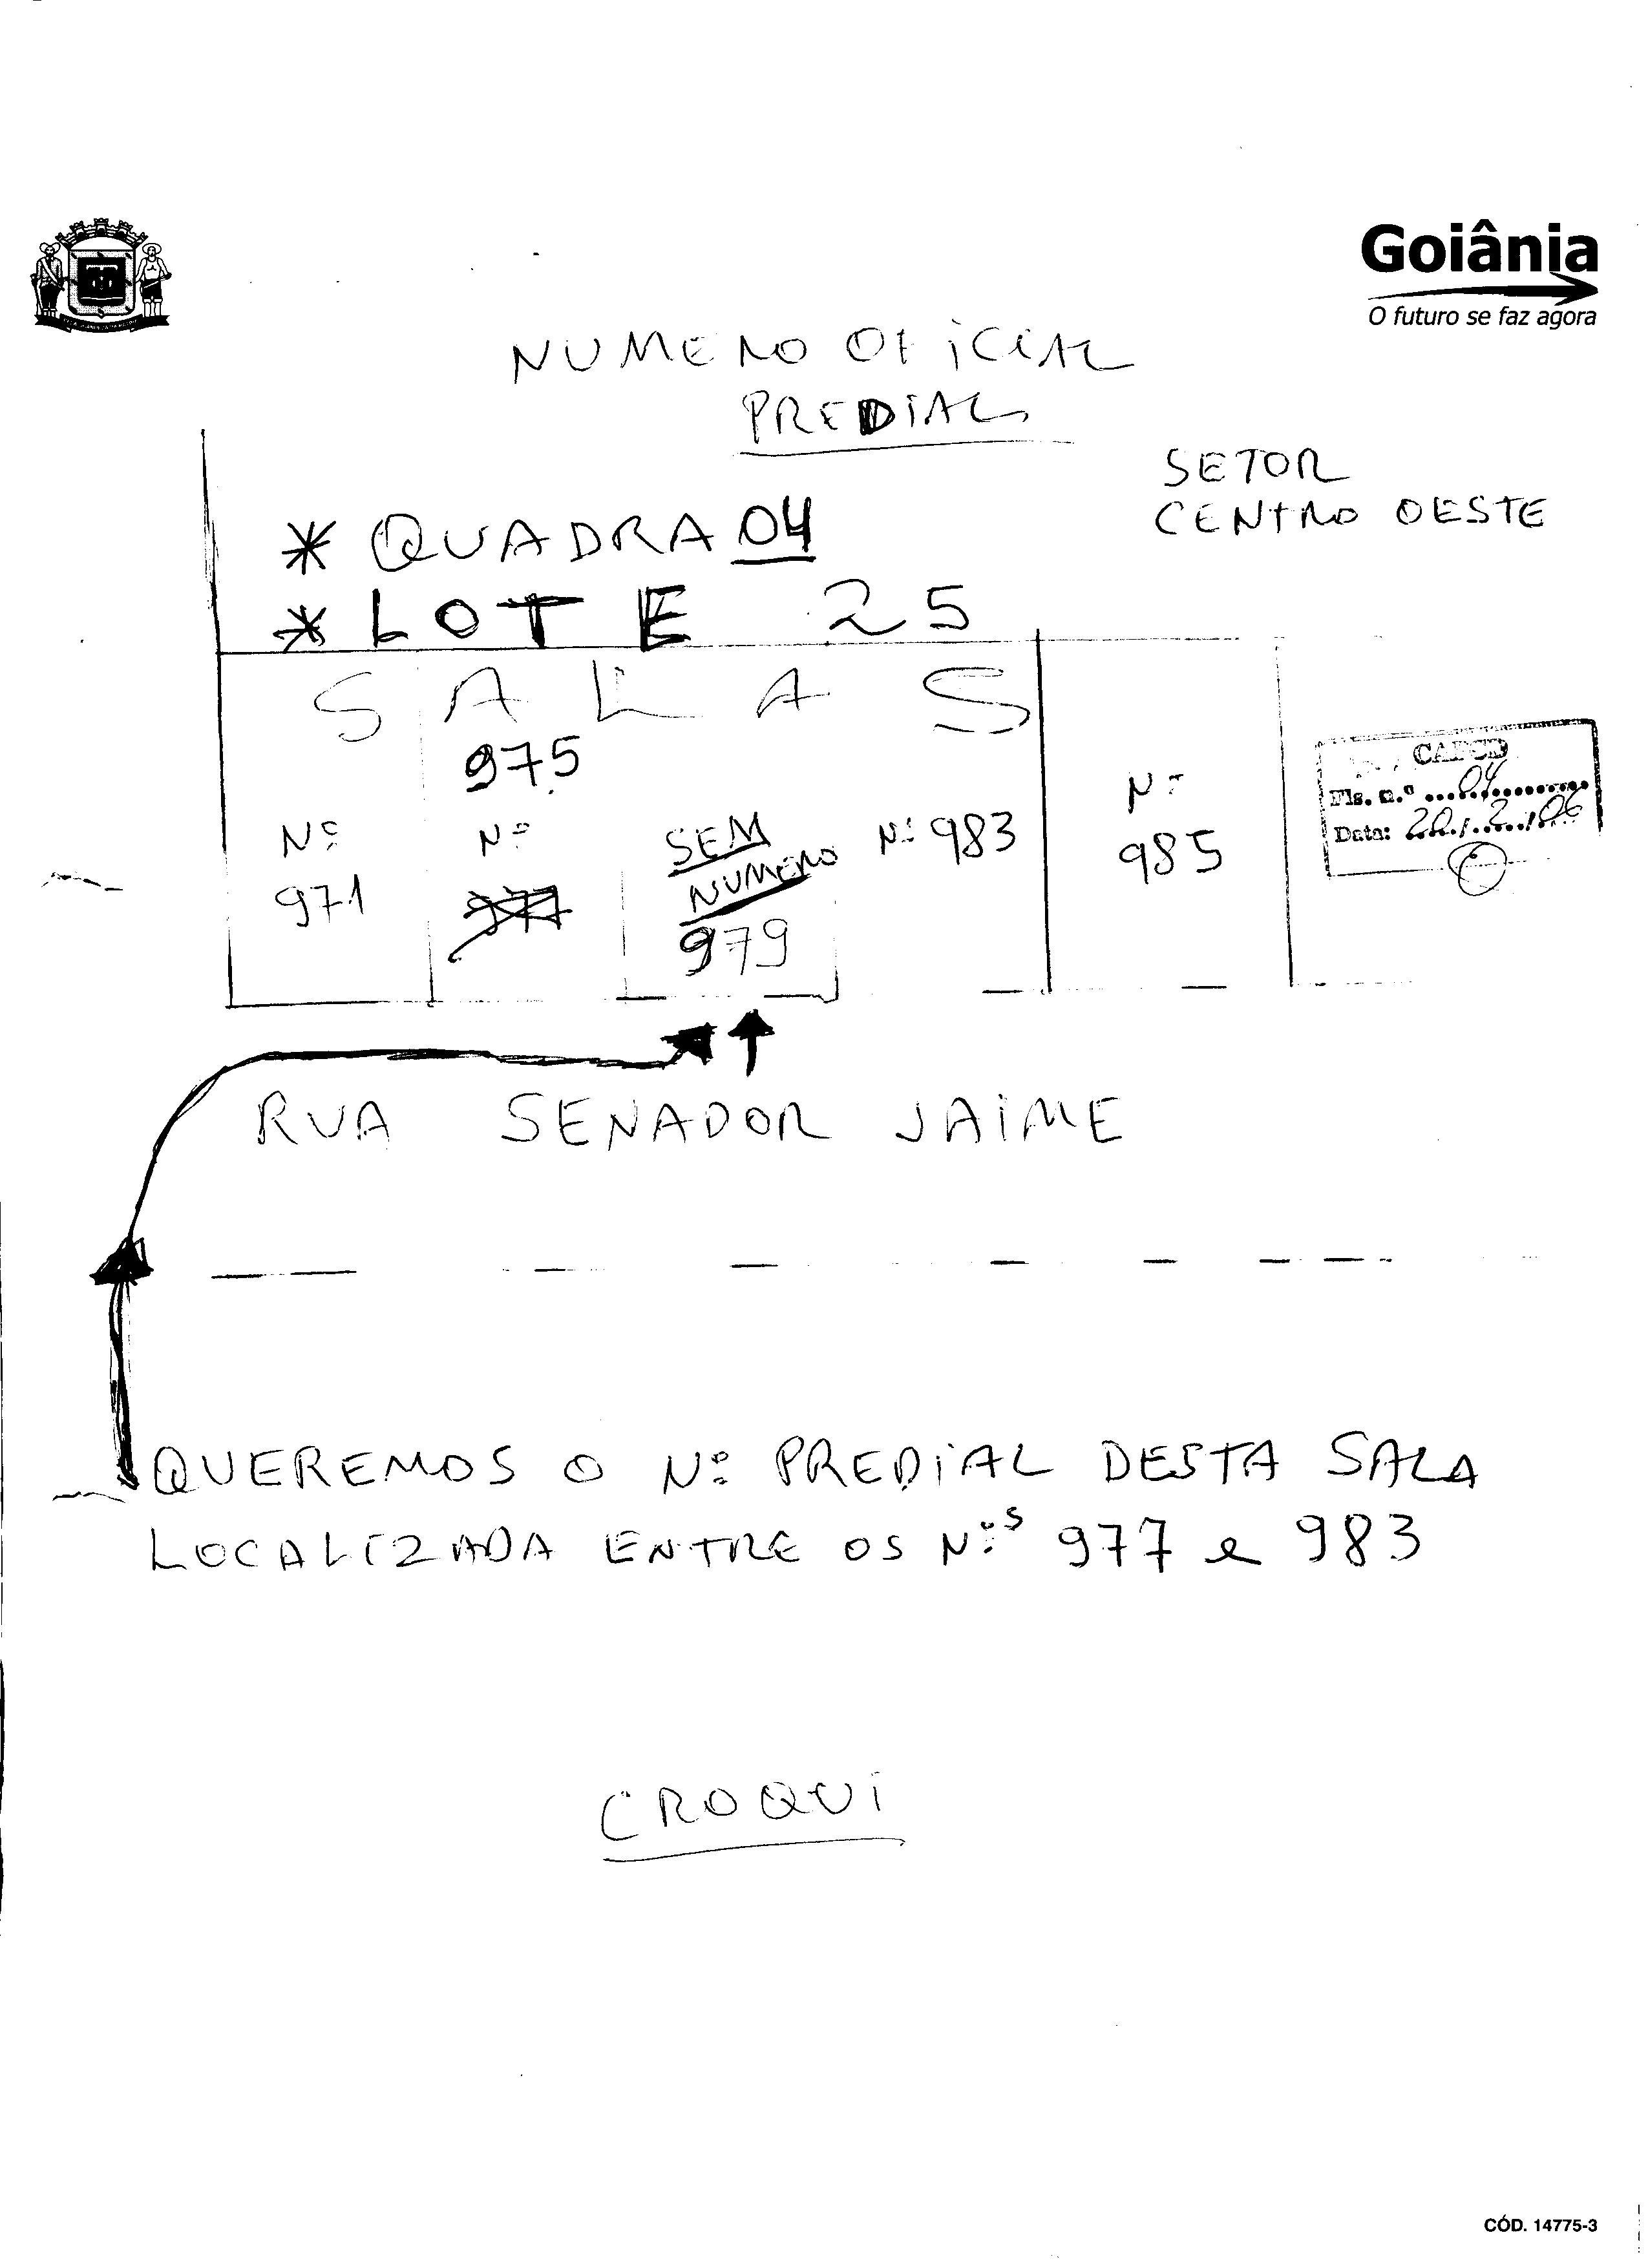 Goiânia
O futuro se faz agora
NUMERO OFICIAL
PREDIAL
SETOR
CENTRO OESTE
* QUADRA 04
* LOTE 25
SALAS
975
Nº
971
Nº
977
SEM
NUMERO
979
Nº 983
Nº
985
Fls. n.º 04
Data: 20/2/06
RUA SENADOR JAIME
QUEREMOS O Nº PREDIAL DESTA SALA
LOCALIZADA ENTRE OS Nºs 977 e 983
CROQUI
CÓD. 14775-3